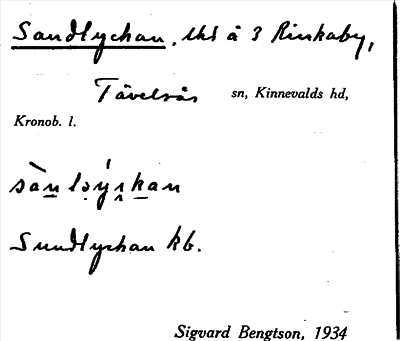 Sandlyckan. uhs å 3 Rinkaby,
Tävelsås sn, Kinnevalds hd,
Kronob. l.
Sundlyckan kb.
Sigvard Bengtson, 1934